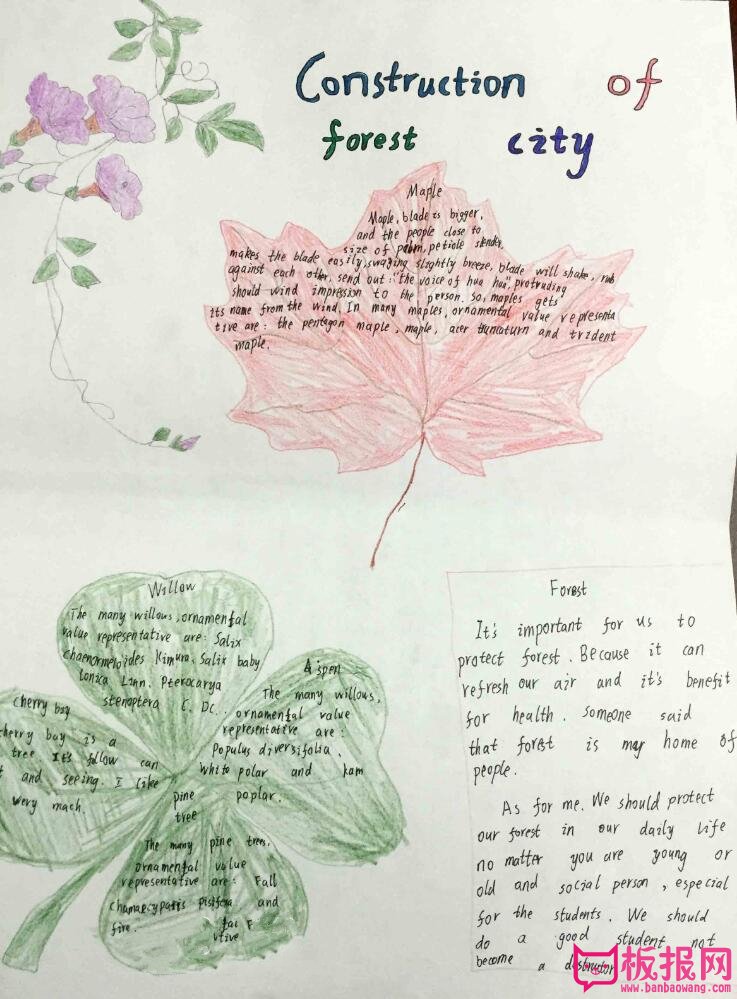 Construction of
forest city
Maple
Maple, blade is bigger,
and the people close to
size of palm, petiole slender,
makes the blade easily, swaging slightly breeze, blade will shake, rub
against each other, send out: "the voice of hua hua", protruding
should wind impression to the person. So, maples gets
its name from the wind. In many maples, ornamental value representa
tive are: the pentagon maple, maple, acer truncaturn and trident
maple.
Willow
The many willows, ornamental
value representative are: Salix
chaenormeloides Kimura. Salix baby
lonica Linn. Pterocarya
stenoptera C. DC.
Aspen
The many willows,
ornamental value
representative are:
Populus diversifolia,
white polar and kam
poplar.
cherry boy
cherry boy is a
tree It's follow can
and seeing. I like
very mach.
pine
tree
The many pine trees,
ornamental value
representative are: Fall
chamaecyparis pisifora and
fire.
Forest
It's important for us to
protect forest. Because it can
refresh our air and it's benefit
for health. Someone said
that forest is may home of
people.
As for me. We should protect
our forest in our daily life
no matter you are young or
old and social person, especial
for the students. We should
do a good student not
become a destructor
板报网
www.banbaowang.com